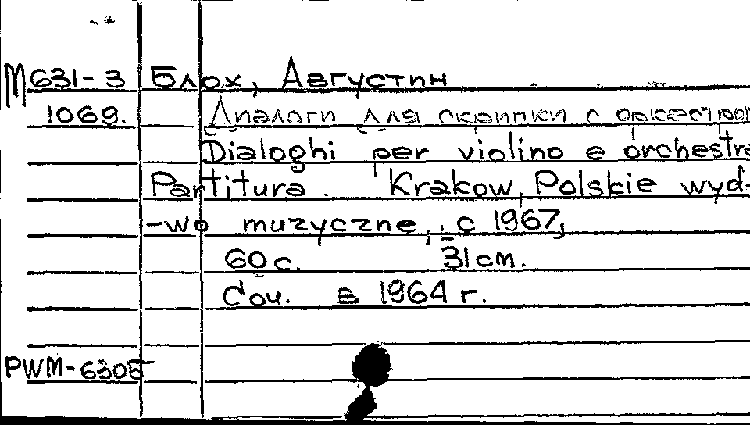 М631-3 Блох, Августин
1069. Диалоги для скрипки с оркестром
Dialoghi per violino e orchestra
Partitura. Krakow, Polskie wyd-
-wo muzyczne, c 1967,
60 с. 31 см.
Соч. в 1964 г.
PWM-6305